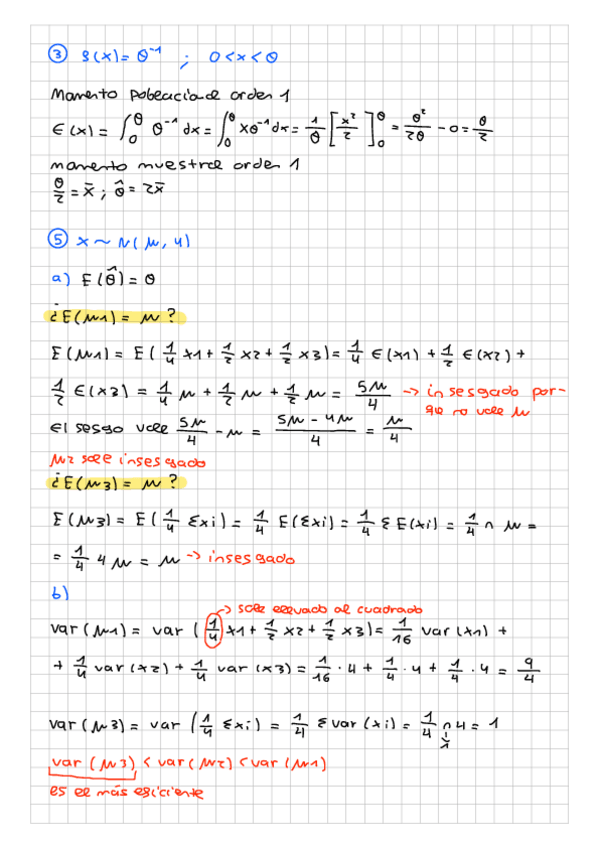 ③ f(x) = θ⁻¹ ; 0 < x < θ
Momento poblacional orden 1
E(x) = ∫₀^θ θ⁻¹ dx = ∫₀^θ xθ⁻¹ dx = 1/θ [x²/2]₀^θ = θ²/2θ - 0 = θ/2
momento muestral orden 1
θ/2 = x̄ ; θ̂ = 2x̄
⑤ x ~ N(μ, 4)
a) E(θ̂) = θ
¿E(μ1) = μ?
E(μ1) = E(1/4 x1 + 1/2 x2 + 1/2 x3) = 1/4 E(x1) + 1/2 E(x2) +
1/2 E(x3) = 1/4 μ + 1/2 μ + 1/2 μ = 5μ/4 → insesgado por-
que no vale μ
El sesgo vale 5μ/4 - μ = (5μ - 4μ)/4 = μ/4
μ2 sale insesgado
¿E(μ3) = μ?
E(μ3) = E(1/4 Σxi) = 1/4 E(Σxi) = 1/4 Σ E(xi) = 1/4 n μ =
= 1/4 4 μ = μ → insesgado
b)
→ sale elevado al cuadrado
var(μ1) = var(1/4 x1 + 1/2 x2 + 1/2 x3) = 1/16 var(x1) +
+ 1/4 var(x2) + 1/4 var(x3) = 1/16 · 4 + 1/4 · 4 + 1/4 · 4 = 9/4
var(μ3) = var(1/4 Σxi) = 1/4 Σvar(xi) = 1/4 n 4 = 1
var(μ3) < var(μ2) < var(μ1)
es el más eficiente